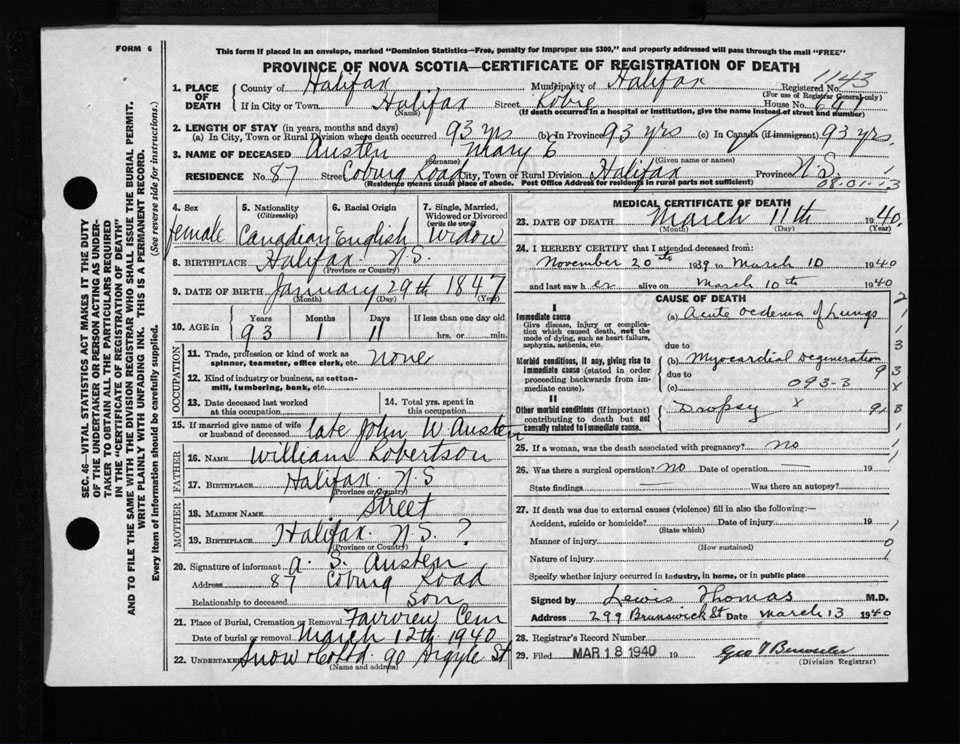 FORM 6
This form if placed in an envelope, marked "Dominion Statistics—Free, penalty for improper use $300," and properly addressed will pass through the mail "FREE"
PROVINCE OF NOVA SCOTIA—CERTIFICATE OF REGISTRATION OF DEATH
1143
1. PLACE OF DEATH
County of Halifax Municipality of Halifax Registered No.
(For use of Registrar General only)
If in City or Town Halifax Street Robie House No.
(Name) (If death occurred in a hospital or institution, give the name instead of street and number)
2. LENGTH OF STAY (in years, months and days)
(a) In City, Town or Rural Division where death occurred 93 yrs (b) In Province 93 yrs (c) In Canada (if immigrant) 93 yrs.
3. NAME OF DECEASED Austen Mary E
(Surname) (Given name or names)
RESIDENCE No. 87 Street Coburg Road City, Town or Rural Division Halifax Province N.S.
(Residence means usual place of abode. Post Office Address for residents in rural parts not sufficient)
08.01-13
4. Sex female
5. Nationality (Citizenship) Canadian
6. Racial Origin English
7. Single, Married, Widowed or Divorced (write the word) Widow
8. BIRTHPLACE Halifax N.S.
(Province or Country)
9. DATE OF BIRTH January 29th 1847
(Month) (Day) (Year)
10. AGE in Years Months Days If less than one day old
93 1 11 hrs. or min.
OCCUPATION
11. Trade, profession or kind of work as spinner, teamster, office clerk, etc. none
12. Kind of industry or business, as cotton-mill, lumbering, bank, etc.
13. Date deceased last worked at this occupation
14. Total yrs. spent in this occupation
15. If married give name of wife or husband of deceased late John W. Austen
FATHER
16. NAME William Robertson
17. BIRTHPLACE Halifax N.S
(Province or Country)
MOTHER
18. MAIDEN NAME Street
19. BIRTHPLACE Halifax N.S. ?
(Province or Country)
20. Signature of informant A. S. Austen
Address 87 Coburg Road
Relationship to deceased Son
21. Place of Burial, Cremation or Removal Fairview Cem
Date of burial or removal March 12th 1940
22. Undertaker Snow & Co Ltd. 90 Argyle St
(Name and address)
MEDICAL CERTIFICATE OF DEATH
23. DATE OF DEATH March 11th 1940
(Month) (Day) (Year)
24. I HEREBY CERTIFY that I attended deceased from:
November 20th 1939 to March 10 1940
and last saw her alive on March 10th 1940
CAUSE OF DEATH
I
Immediate cause
Give disease, injury or complication which caused death, not the mode of dying, such as heart failure, asphyxia, asthenia, etc.
(a) Acute oedema of Lungs
due to
Morbid conditions, if any, giving rise to immediate cause (stated in order proceeding backwards from immediate cause).
(b) Myocardial Degeneration
due to
(c) 093-3
II
Other morbid conditions (if important) contributing to death but not causally related to immediate cause.
Dropsy x
25. If a woman, was the death associated with pregnancy? no
26. Was there a surgical operation? no Date of operation — 19
State findings — Was there an autopsy?
27. If death was due to external causes (violence) fill in also the following:—
Accident, suicide or homicide? Date of injury 19
(State which)
Manner of injury
(How sustained)
Nature of injury
Specify whether injury occurred in industry, in home, or in public place
Signed by Lewis Thomas M.D.
Address 299 Brunswick St Date March 13 1940
28. Registrar's Record Number
29. Filed MAR 18 1940 19
(Division Registrar)
SEC. 46—VITAL STATISTICS ACT MAKES IT THE DUTY
OF THE UNDERTAKER OR PERSON ACTING AS UNDER-
TAKER TO OBTAIN ALL THE PARTICULARS REQUIRED
IN THE "CERTIFICATE OF REGISTRATION OF DEATH"
AND TO FILE THE SAME WITH THE DIVISION REGISTRAR WHO SHALL ISSUE THE BURIAL PERMIT.
WRITE PLAINLY WITH UNFADING INK. THIS IS A PERMANENT RECORD.
Every item of information should be carefully supplied. (See reverse side for instructions.)